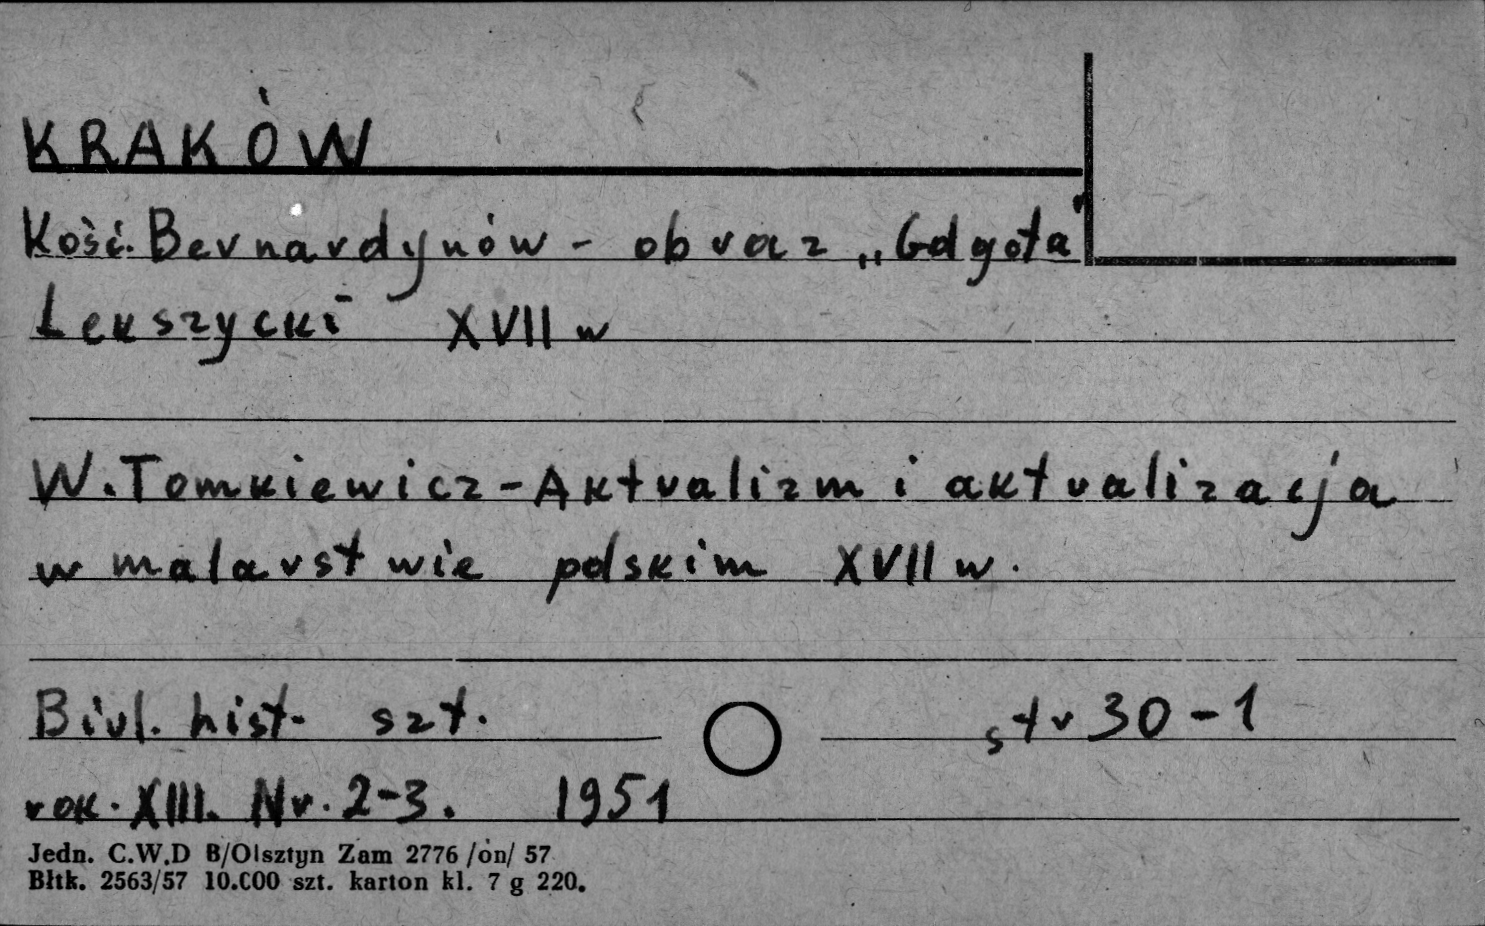 KRAKÓW
Kość. Bernardynów - obraz „Gdgota"
Lekszycki XVII w
W. Tomkiewicz - Aktualizm i aktualizacja
w malarstwie polskim XVII w.
Biul. hist. szt. str 30-1
rok. XIII. Nr. 2-3. 1951
Jedn. C.W.D B/Olsztyn Zam 2776 /on/ 57
Błtk. 2563/57 10.C00 szt. karton kl. 7 g 220.